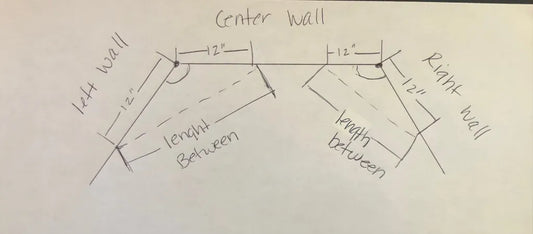 Center Wall
12"
12"
left wall
12"
Right Wall
12"
lenght
Between
length
between